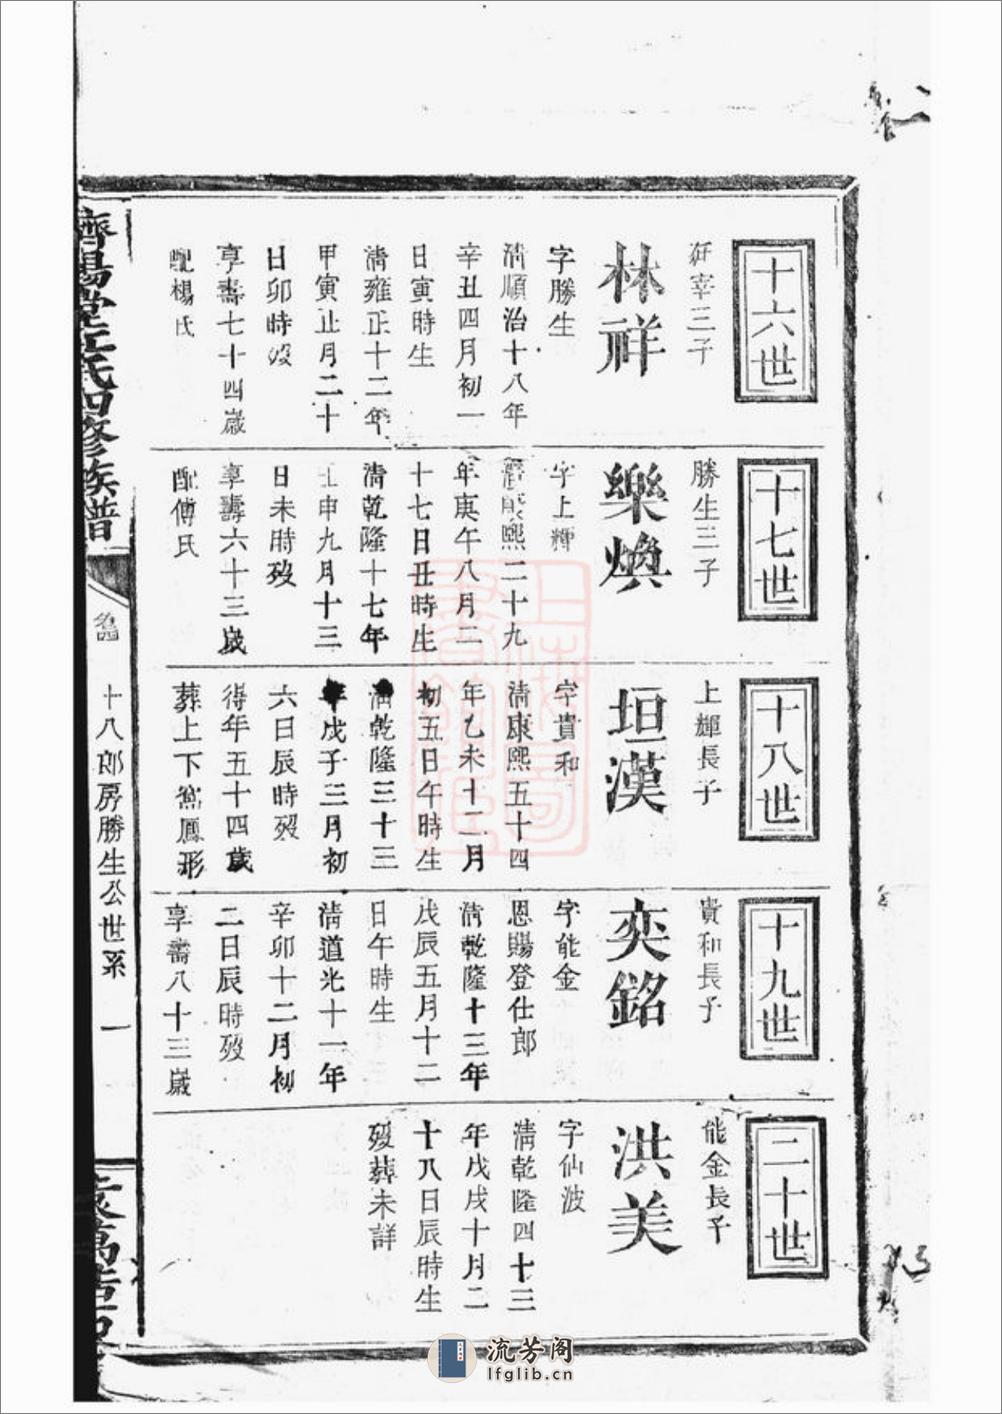 十六世
宰三子
林祥
字勝生
清順治十八年
辛丑四月初一
日寅時生
清雍正十二年
甲寅正月二十
日卯時歿
享壽七十四歲
配楊氏
十七世
勝生三子
樂煥
字上輝
清康熙二十九
年庚午八月二
十七日丑時生
清乾隆十七年
壬申九月十三
日未時歿
享壽六十三歲
配傅氏
十八世
上輝長子
垣漢
字貴和
清康熙五十四
年乙未十二月
初五日午時生
清乾隆三十三
年戊子三月初
六日辰時歿
得年五十四歲
葬上下鳳形
十九世
貴和長子
奕銘
字能金
恩賜登仕郎
清乾隆十三年
戊辰五月十二
日午時生
清道光十一年
辛卯十二月初
二日辰時歿
享壽八十三歲
二十世
能金長子
洪美
字仙波
清乾隆四十三
年戊戌十月二
十八日辰時生
歿葬未詳
濟陽堂江氏四修族譜
十八郎房勝生公世系
一
流芳阁
lfglib.cn